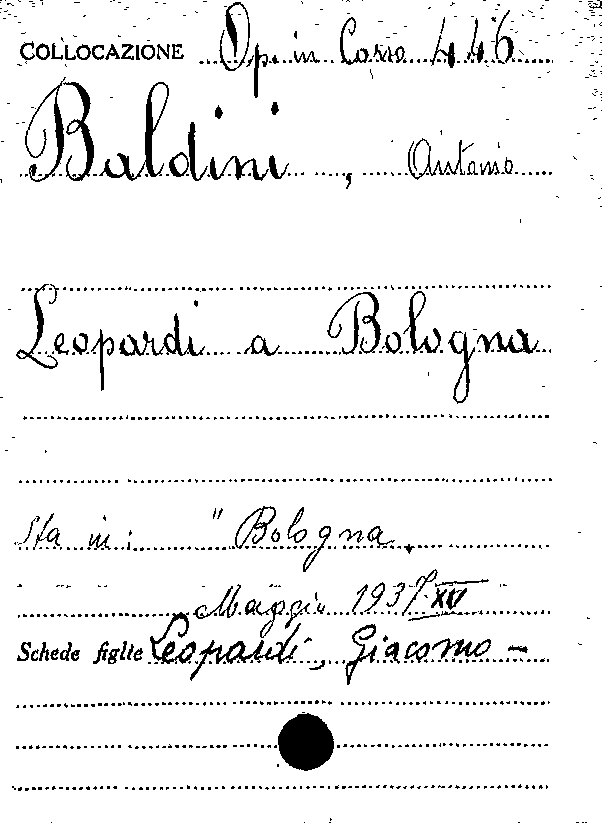 COLLOCAZIONE Op. in Corso 446
Baldini, Antonio
Leopardi a Bologna
Sta in: " Bologna,
Maggio 1937 XV
Schede figlie Leopardi, Giacomo -